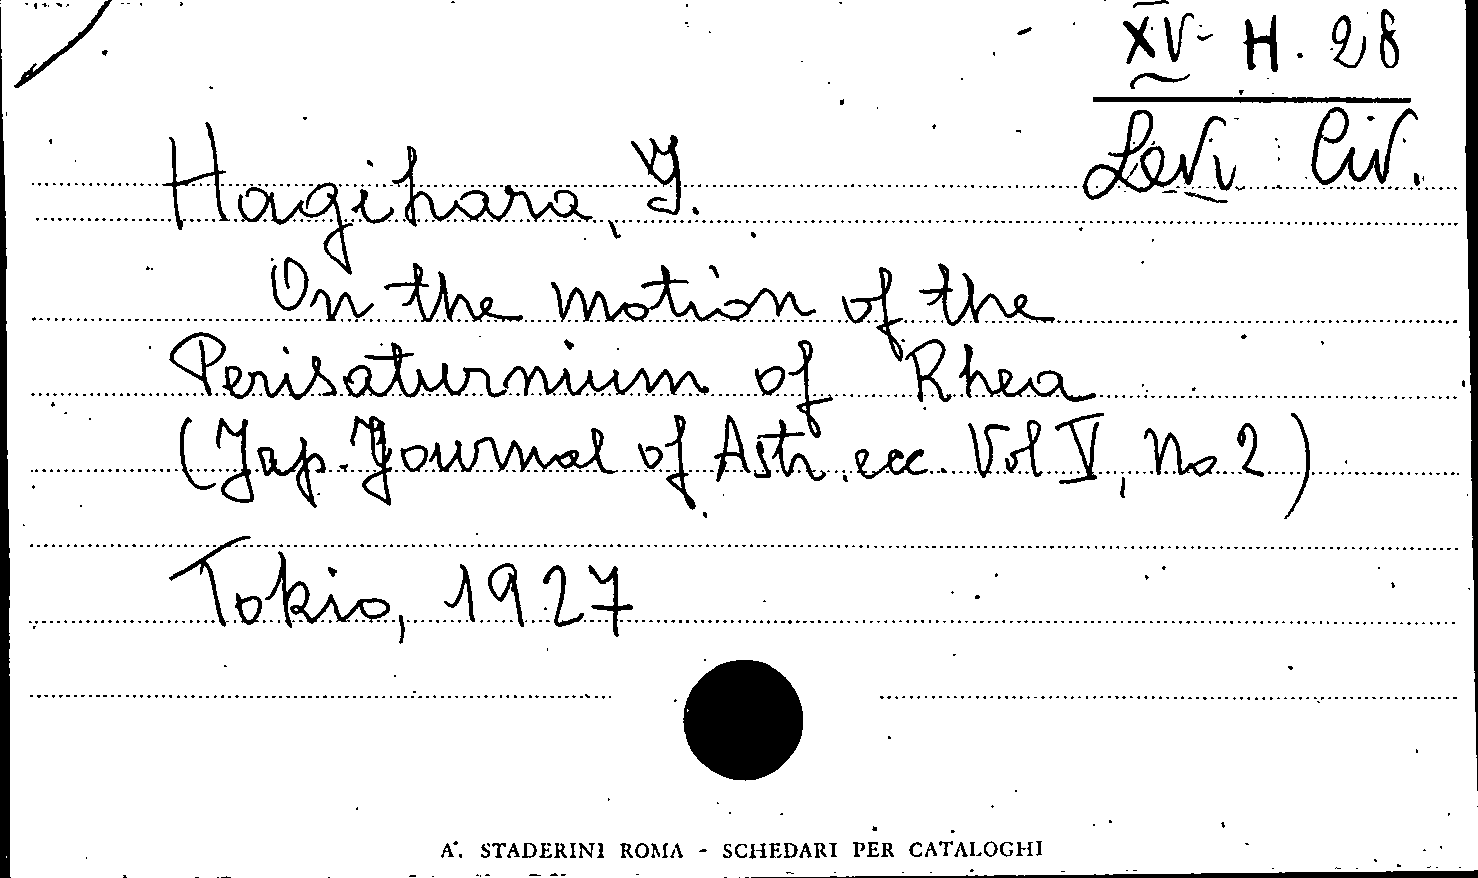 XV- H. 28
Levi Civ.
Hagihara, Y.
On the motion of the
Perisaturnium of Rhea
(Jap. Journal of Astr. ecc. Vol V, No 2)
Tokio, 1927
A. STADERINI ROMA - SCHEDARI PER CATALOGHI